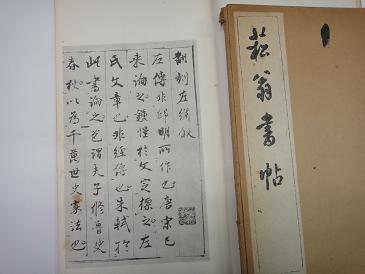 菘翁書帖
翻刻左繡敘
左傳非邱明所作也唐宋已
來論之於文定標之左
氏文章也非經傳也朱軾於
此書論之謂夫子修魯史
春秋以為千萬世史家法也